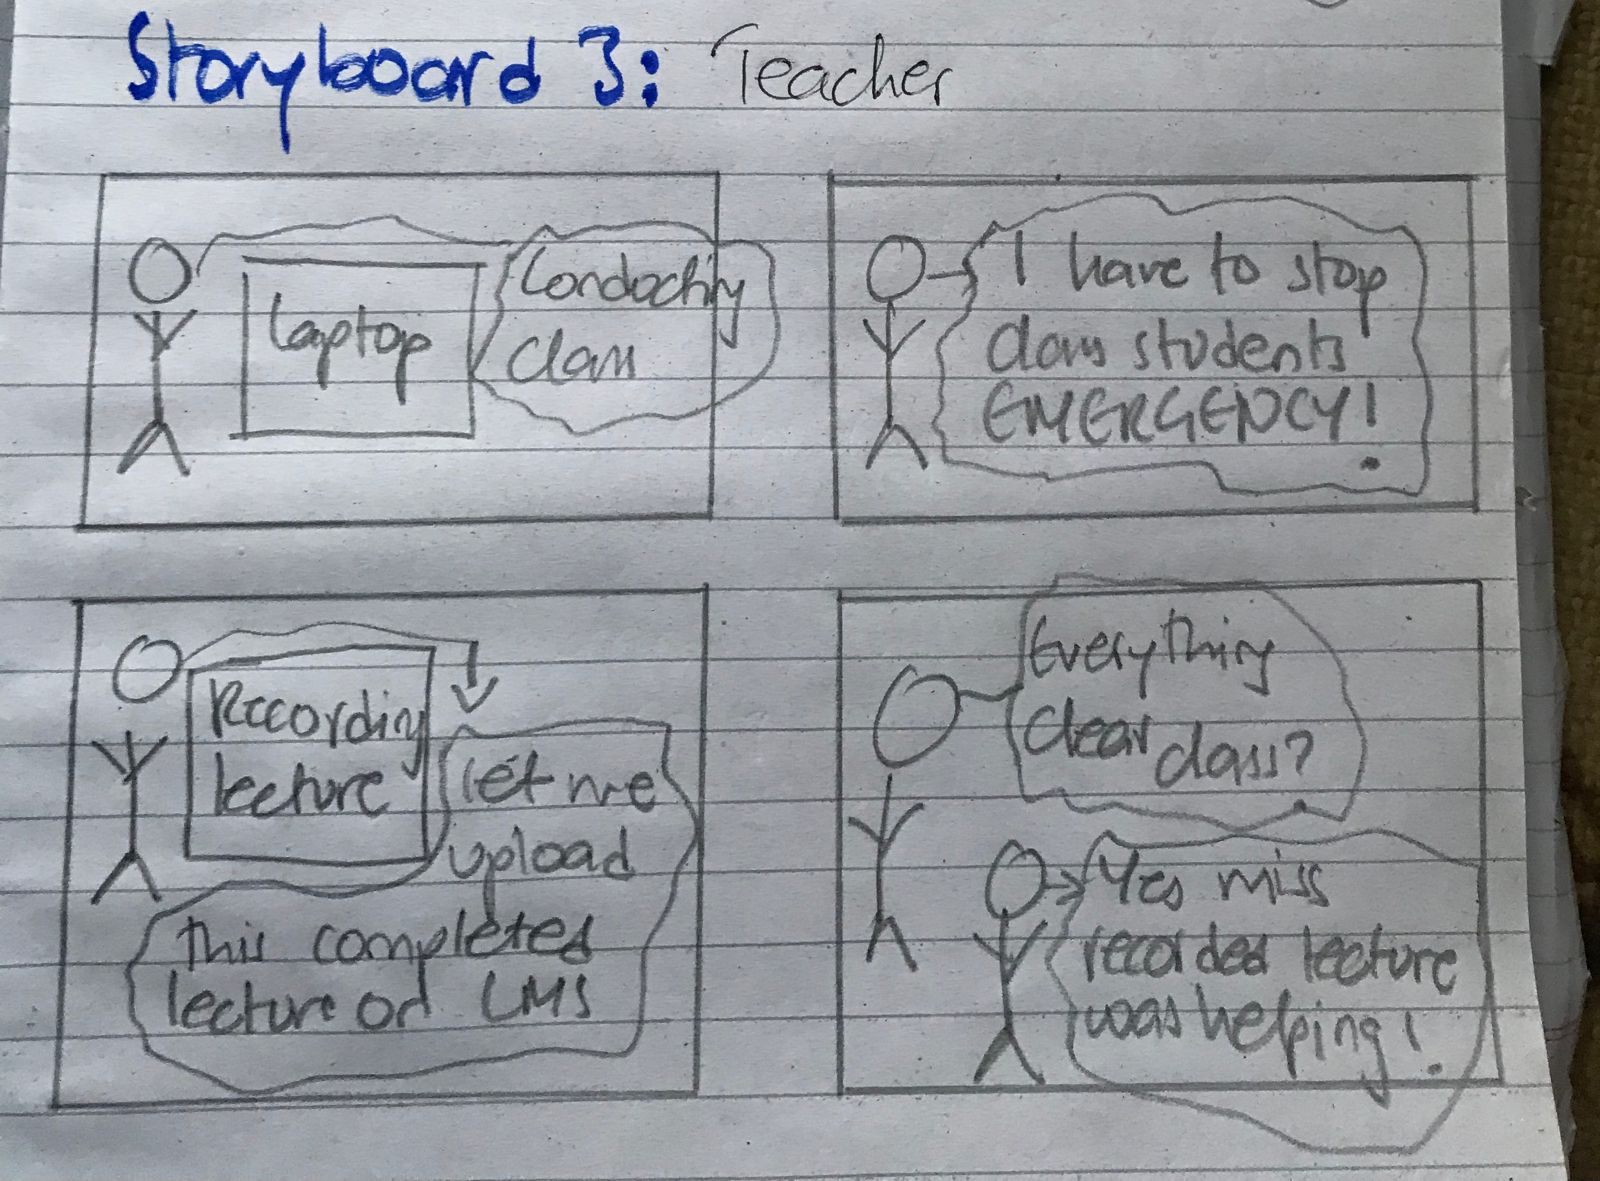 Storyboard 3: Teacher
Laptop
Conductily
class
I have to stop
class students
EMERGENCY!
Recording
lecture
let me
upload
this completed
lecture on LMS
Everything
clear class?
Yes miss
recorded lecture
was helping!